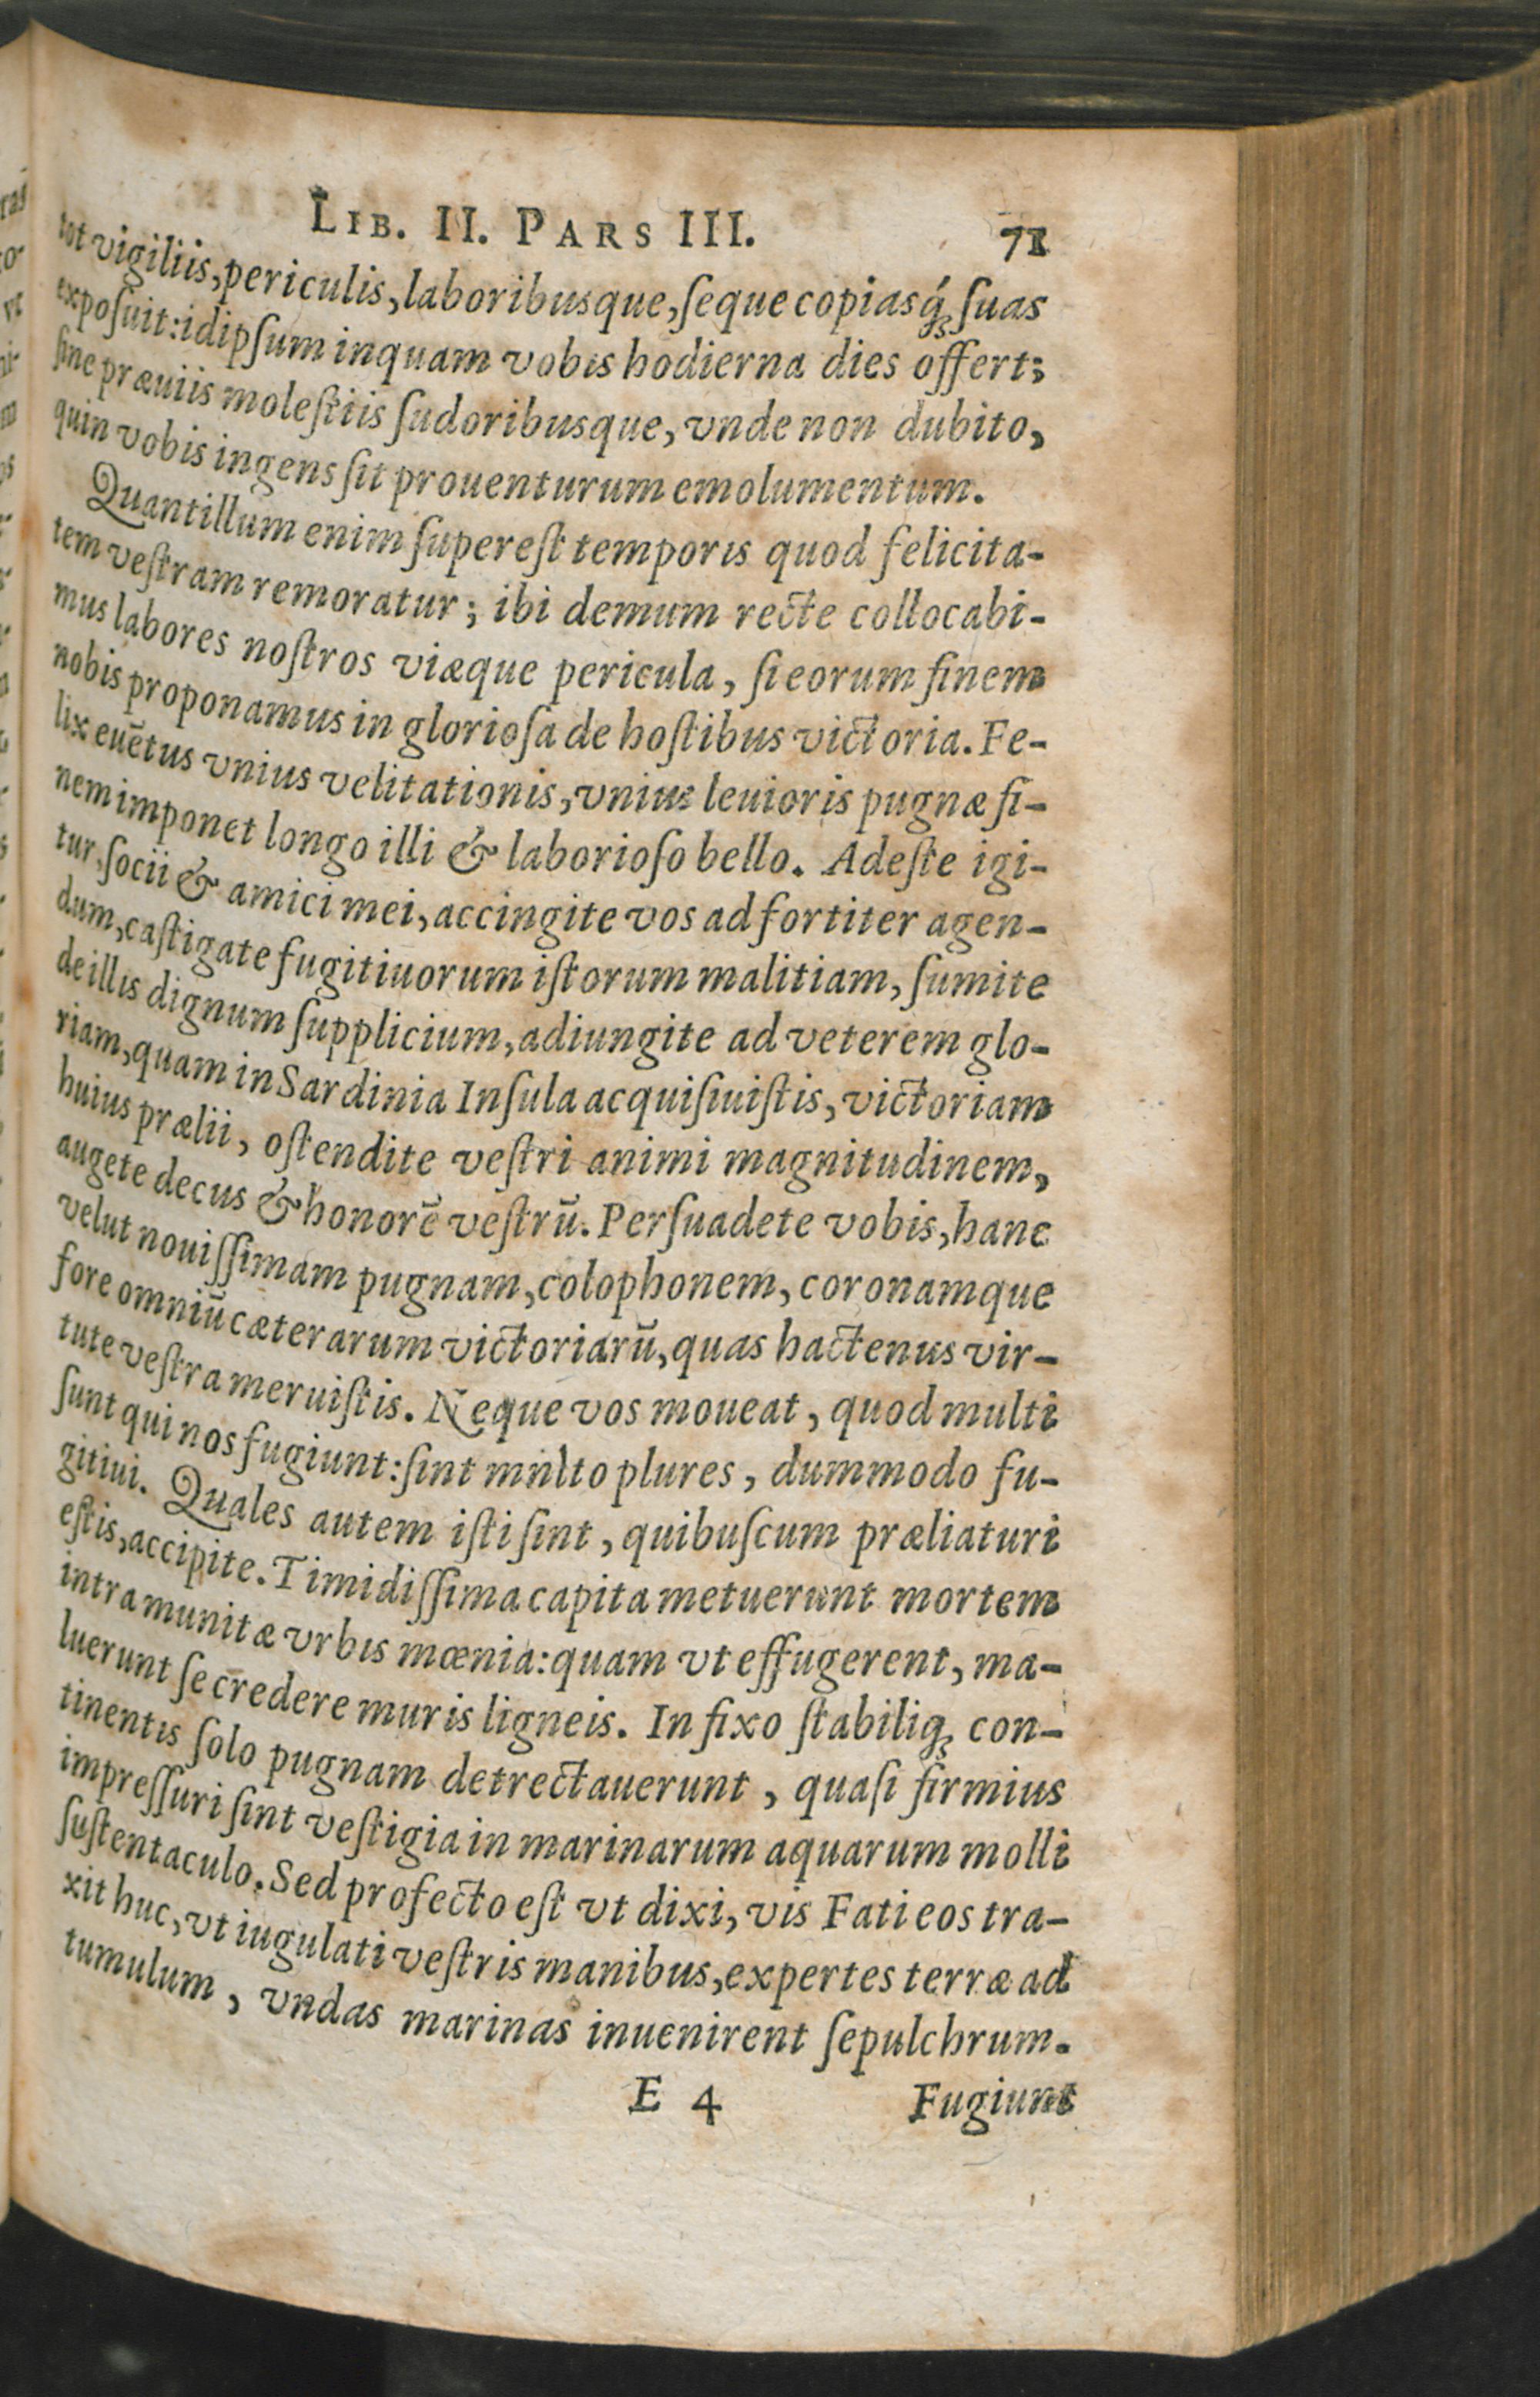 LIB. II. PARS III. 71
tot vigiliis, periculis, laboribusque, ſeque copiasq́; ſuas
expoſuit: idipſum inquam vobis hodierna dies offert;
ſine præuiis moleſtiis ſudoribusque, vnde non dubito,
quin vobis ingens ſit prouenturum emolumentum.
Quantillum enim ſupereſt temporis quod felicita-
tem veſtram remoratur; ibi demum recte collocabi-
mus labores noſtros viæque pericula, ſi eorum finem
nobis proponamus in glorioſa de hoſtibus victoria. Fe-
lix euẽtus vnius velitationis, vnius leuioris pugnæ fi-
nem imponet longo illi & laborioſo bello. Adeſte igi-
tur, ſocii & amici mei, accingite vos ad fortiter agen-
dum, caſtigate fugitiuorum iſtorum malitiam, ſumite
de illis dignum ſupplicium, adiungite ad veterem glo-
riam, quam in Sardinia Inſula acquiſiuiſtis, victoriam
huius prælii, oſtendite veſtri animi magnitudinem,
augete decus & honorẽ veſtrũ. Perſuadete vobis, hanc
velut nouiſſimam pugnam, colophonem, coronamque
fore omniũ cæterarum victoriarũ, quas hactenus vir-
tute veſtra meruiſtis. Neque vos moueat, quod multi
ſunt qui nos fugiunt: ſint mnlto plures, dummodo fu-
gitiui. Quales autem iſti ſint, quibuſcum præliaturi
eſtis, accipite. Timidiſſima capita metuerunt mortem
intra munitæ vrbis mœnia: quam vt effugerent, ma-
luerunt ſe credere muris ligneis. In fixo ſtabiliq; con-
tinentis ſolo pugnam detrectauerunt, quaſi firmius
impreſſuri ſint veſtigia in marinarum aquarum molli
ſuſtentaculo. Sed profecto eſt vt dixi, vis Fati eos tra-
xit huc, vt iugulati veſtris manibus, expertes terræ ad
tumulum, vndas marinas inuenirent ſepulchrum.
E 4 Fugiunt